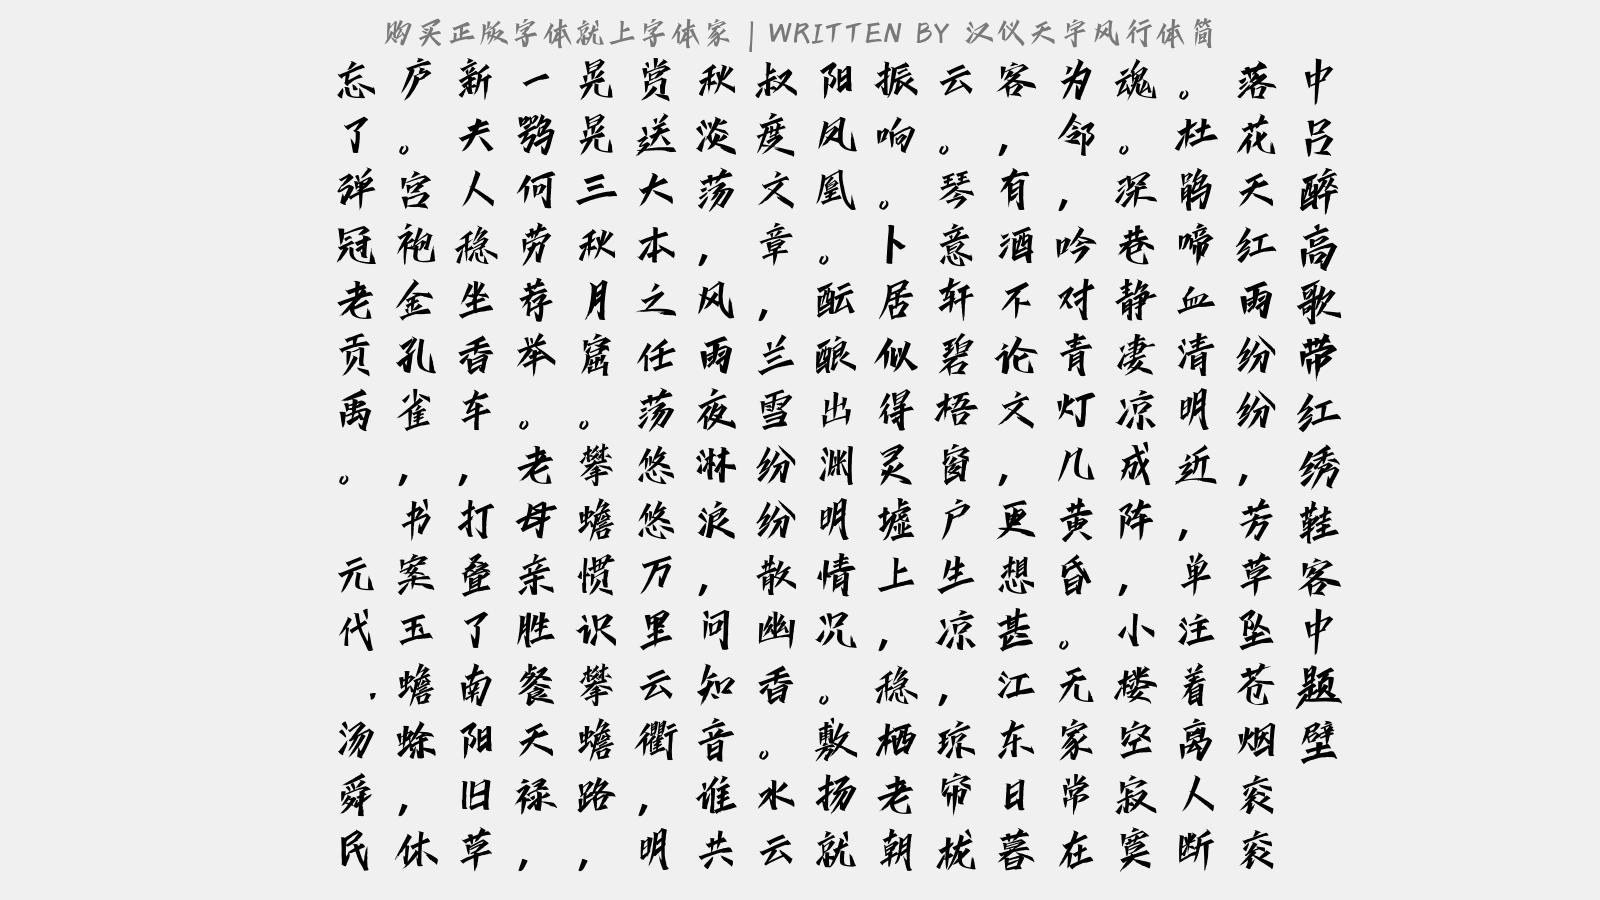 购买正版字体就上字体家 | WRITTEN BY 汉仪天宇风行体简
中吕醉高歌带红绣鞋客中题壁
落花天红雨纷纷，芳草坠苍烟衮衮
。杜鹃啼血清明近，单注着离人断
魂。深巷静凄凉成阵，小楼空寂寞
为邻，吟对青灯几黄昏。无家常在
客，有酒不论文，更想甚江东日暮
云。琴意轩碧梧窗户生凉，琼帘栊
振响。卜居似得灵墟上，稳栖老朝
阳凤凰。酝酿出渊明情况。敷扬就
叔度文章，兰雪纷纷散幽香。水云
秋淡荡，风雨夜淋浪，问知音谁共
赏送大本之任荡悠悠万里云衢，明
晃晃三秋月窟。攀蟾惯识攀蟾路，
一鹗何劳荐举。老母亲胜餐天禄，
新夫人稳坐香车，打叠了南阳旧草
庐。宫袍金孔雀，书案玉蟾蜍，休
忘了弹冠老贡禹。　元代.汤舜民